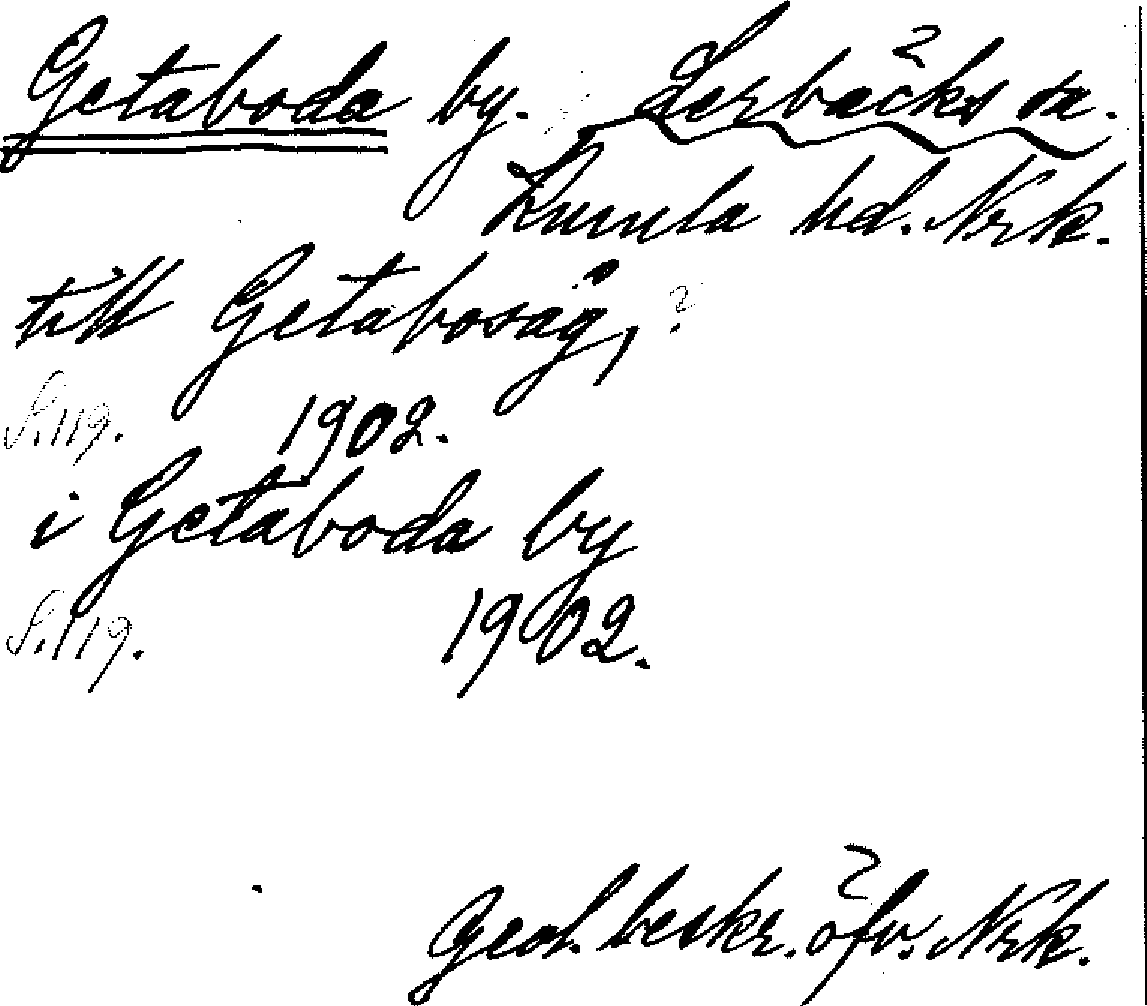 Getaboda by. Lerbäcks sn.
Kumla hd. Nrk.
till Getabosåg, ?
S. 119. 1902.
i Getaboda by
S. 119. 1902.
Geol. beskr. öfv. Nrk.